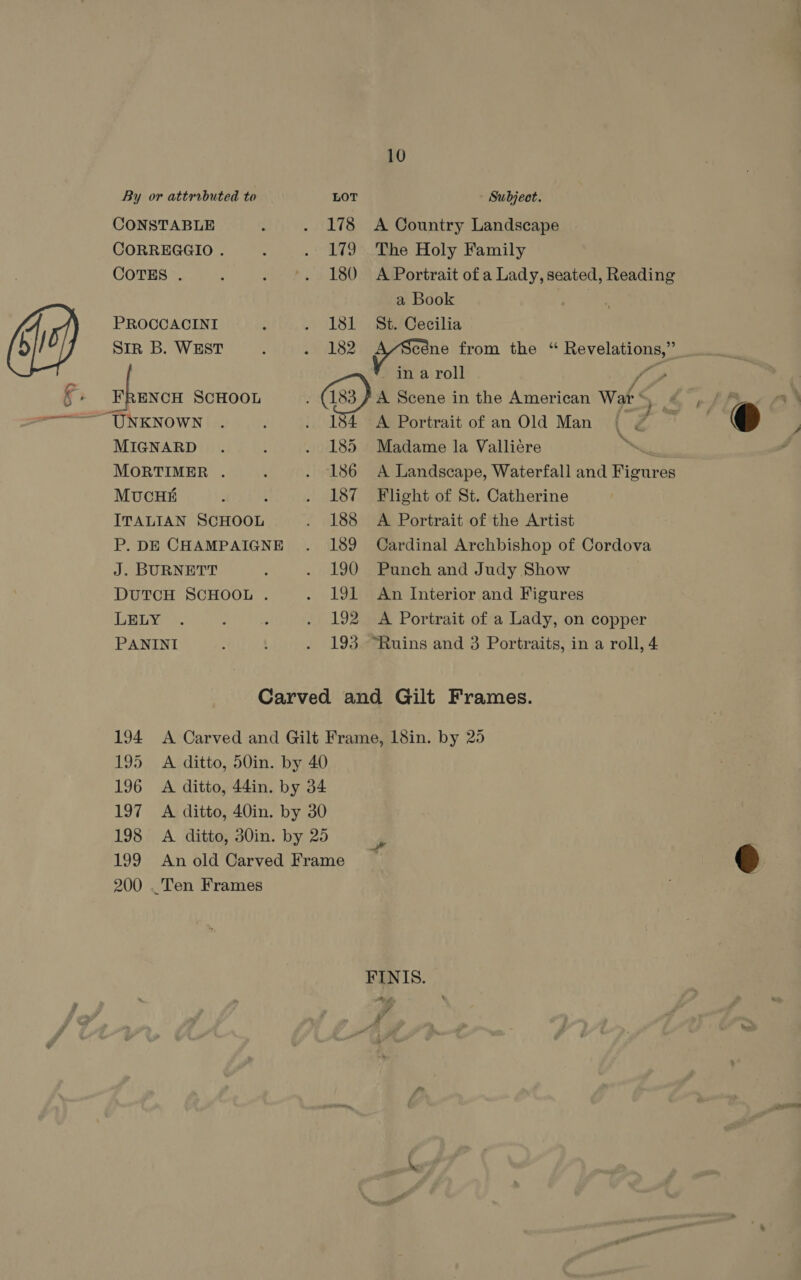 10
By or attributed to LOT Subject.
CONSTABLE . . 178 A Country Landscape
CORREGGIO . . . 179 The Holy Family
COTES . . . . 180 A Portrait of a Lady, seated, Reading
a Book
PROCCACINI . . 181 St. Cecilia
SIR B. WEST . . 182 A Scéne from the “ Revelations,”
in a roll
FRENCH SCHOOL . 183 A Scene in the American War
UNKNOWN . . . 184 A Portrait of an Old Man
MIGNARD . . . 185 Madame la Valliére
MORTIMER . . . 186 A Landscape, Waterfall and Figures
MUCHÉ . . . 187 Flight of St. Catherine
ITALIAN SCHOOL . 188 A Portrait of the Artist
P. DE CHAMPAIGNE . 189 Cardinal Archbishop of Cordova
J. BURNETT . . 190 Punch and Judy Show
DUTCH SCHOOL . . 191 An Interior and Figures
LELY . . . . 192 A Portrait of a Lady, on copper
PANINI . . . 193 Ruins and 3 Portraits, in a roll, 4
Carved and Gilt Frames.
194 A Carved and Gilt Frame, 18in. by 25
195 A ditto, 50in. by 40
196 A ditto, 44in. by 34
197 A ditto, 40in. by 30
198 A ditto, 30in. by 25
199 An old Carved Frame
200 Ten Frames
FINIS.